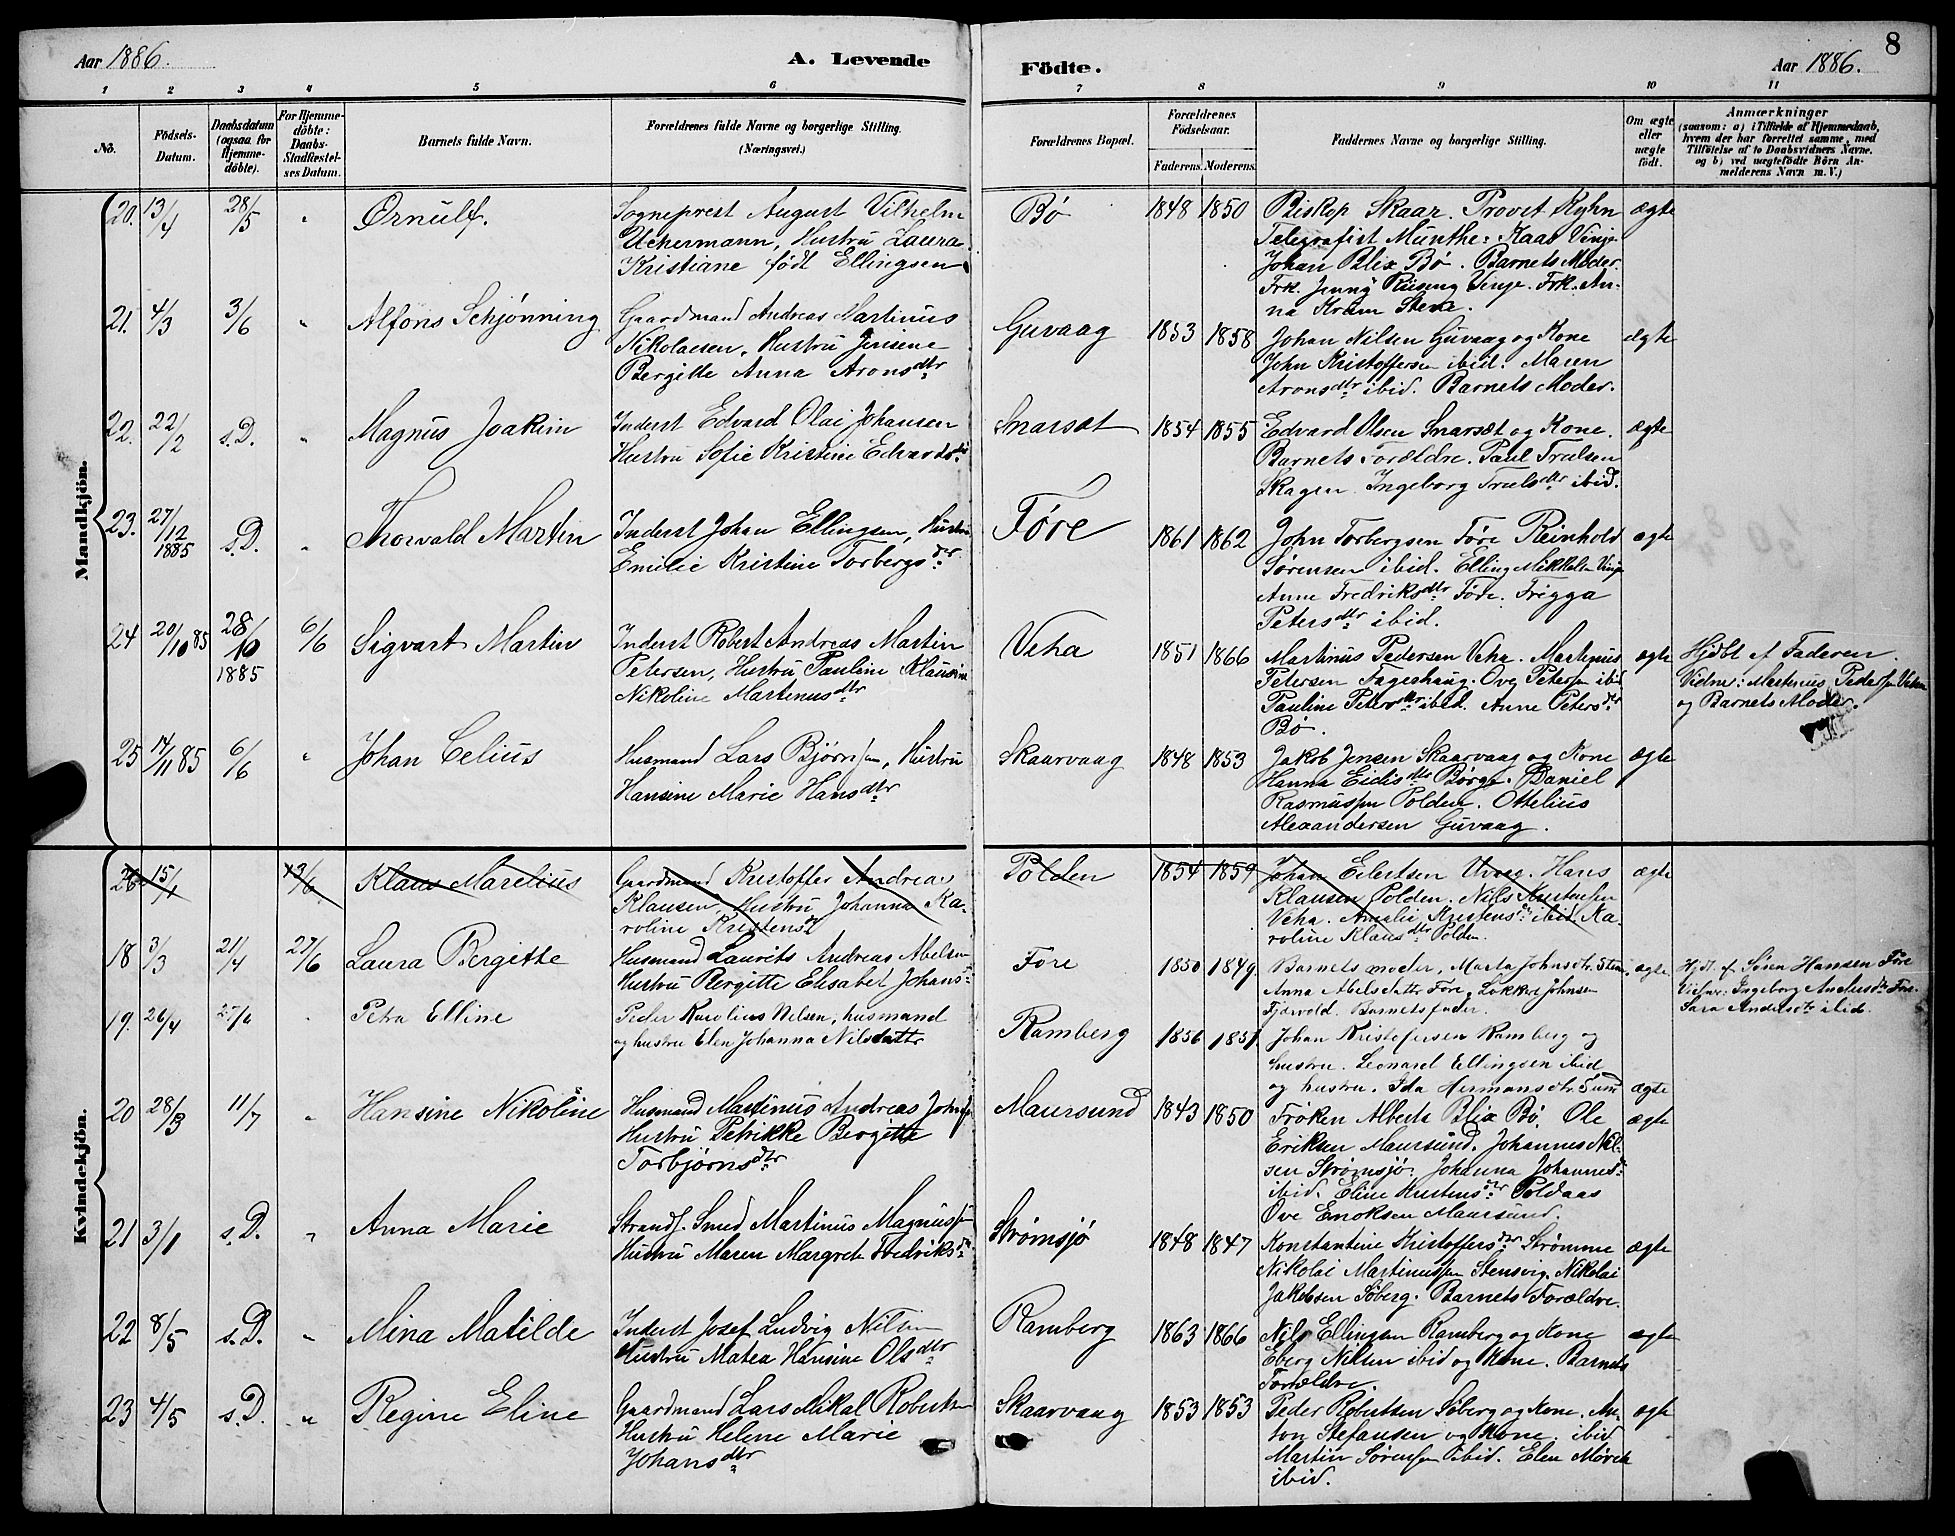 Aar 1886. A. Levende Födte. Aar 1886. 8
1 2 3 4 5 6 7 8 9 10 11
No. Födsels-Datum. Daabsdatum (ogsaa for Hjemmedöbte). For Hjemmedöbte: Daabs-Stadfæstelses Datum. Barnets fulde Navn. Forældrenes fulde Navne og borgerlige Stilling. (Næringsvei.) Forældrenes Bopæl. Forældrenes Födselsaar. Faderens. Moderens. Faddernes Navne og borgerlige Stilling. Om ægte eller uægte födt. Anmærkninger (saasom: a) i Tilfælde af Hjemmedaab, hvem der har forrettet samme, med Tilföielse af to Daabsvidners Navne. og b) ved uægtefödte Börn Anmelderens Navn m. V.)
Mandkjön.
20. 13/4 28/5 " Ørnulf. Sogneprest August Vilhelm Bø 1848 1850 Biskop Skaar. Provst Kyhn ægte
Uchermann, Hustru Laura Telegrafist Munthe-Kaas Vinje
Kristiane født Ellingsen Johan Blix Bø. Barnets Moder.
Frk. Jenny Riising Vinje. Frk. An-
na Kram Stene.
21. 4/3 3/6 " Alfons Schjønning Gaardmand Andreas Martinus Guvaag 1853 1858 Johan Nilsen Guvaag og Kone ægte
Nikolaesen, Hustru Jensine John Kristoffersen ibid. Maren
Bergitte Anna Aronsdtr Aronsdtr ibid. Barnets Moder.
22. 22/2 s.D. " Magnus Joakim Inderst Edvard Olai Johansen Snarsæt 1854 1855 Edvard Olsen Snarsæt og Kone. ægte
Hustru Sofie Kristine Edvardsdtr Barnets Forældre. Paul Trulsen
Skagen. Ingeborg Trulsdtr ibid.
23. 27/12 1885 s.D. " Thorvald Martin Inderst Johan Ellingsen, Hustru Føre 1861 1862 John Torbergsen Føre Reinhold ægte
Emilie Kristine Torbergsdtr Sørensen ibid. Elling Mikkelsen Vinje
Anne Fredriksdtr Føre. Frigga
Petersdtr ibid.
24 20/10 85 28/10 1885 6/6 Sigvart Martin Inderst Robert Andreas Martin Veha 1851 1866 Martinus Pedersen Veha. Martinus ægte Hjdbt af Faderen.
Petersen, Hustru Pauline Klausine Petersen Fageshaug. Ove Petersen ibid Vidner: Martinus Pedersen Veha
Nikoline Martinusdtr Pauline Petersdtr ibid. Anne Petersdtr og Barnets Moder.
Bø.
25 14/11 85 6/6 " Johan Celius Husmand Lars Bjørnsen, Hustru Skaarvaag 1848 1853 Jakob Jensen Skaarvaag og Kone ægte
Hansine Marie Hansdtr Hanna Eidisdtr Børge. Daniel
Rasmussen Polden. Othelius
Alexandersen Guvaag.
Kvindekjön.
26 15/1 13/6 Klaus Marelius Gaardmand Kristoffer Andreas Polden 1854 1859 Johan Eilertsen Uvaag. Hans ægte
Klausen, Hustru Johanna Ka- Klausen Polden. Nils Kristensen
roline Kristensdtr Veha. Amalie Kristensdtr ibid Ka-
roline Klausdtr Polden.
18 3/3 21/4 27/6 Laura Bergitte Husmand Laurits Andreas Abelsen Føre 1850 1849 Barnets moder, Marta Johnsdtr. Steine, ægte Hjdt. af Søren Hansen Føre
Hustru Bergitte Elisabet Johansdtr Anna Abelsdatter Føre, Lokkert Johnsen Vidner: Ingeborg Andersdtr Føre.
Fjærvold. Barnets fader. Sara Andersdtr ibid.
19. 26/4 27/6 " Petra Elline Peder Karolius Nilsen, husmand Ramberg 1856 1851. Johan Kristofersen Ramberg og
og hustru Elen Johanna Nilsdatter hustru. Leonard Ellingsen ibid
og hustru. Ida Hermansdtr. Sund ægte
20 28/3 11/7 " Hansine Nikoline Husmand Martinus Andreas Johnsen Maursund 1843 1850 Frøken Alberta Blix Bø. Ole ægte
Hustru Petrikke Bergitte Eriksen Maursund. Johannes Nil-
Torbjørnsdtr sen Strømsjø. Johanna Johannesdtr
ibid. Eline Kristensdtr Poldaas
Ove Enoksen Maursund.
21 3/1 s.D. " Anna Marie Strands. Smed Martinus Magnussen Strømsjø 1848 1847 Konstantine Kristoffersdtr Strømme ægte
Hustru Maren Margrete Fredriksdtr Nikolai Martinussen Stensvig. Nikolai
Jakobsen Søberg. Barnets Forældre.
22 8/5 s.D. " Mina Matilde Inderst Josef Ludvig Nilsen Ramberg 1863 1866 Nils Ellingsen Ramberg og Kone ægte
Hustru Matea Hansine Olsdtr Eberg Nilsen ibid og Kone. Barnets
Forældre.
23 4/5 s.D. " Regine Eline Gaardmand Lars Mikal Robertsen Skaarvaag 1853 1853 Peder Robertsen Søberg og Kone. An- ægte
Hustru Helene Marie ton Stefansen og Kone. ibid
Johansdtr Martin Sørensen ibid. Elen Mørch
ibid.